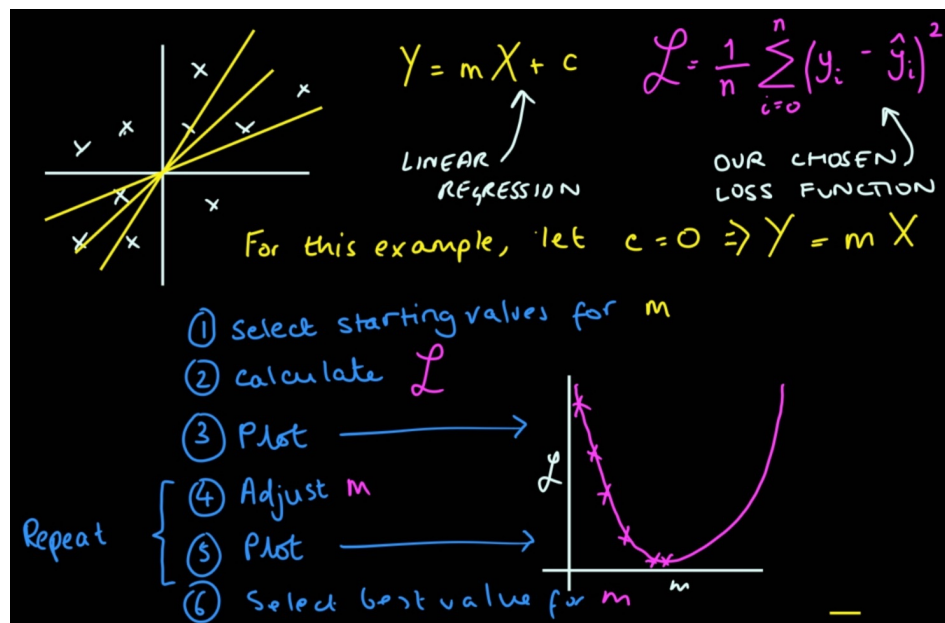 Y = mX + c
ℒ = 1/n ∑ i=0 n (yᵢ - ŷᵢ)²
LINEAR
REGRESSION
OUR CHOSEN
LOSS FUNCTION
For this example, let c = 0 ⇒ Y = m X
① Select starting values for m
② Calculate ℒ
③ Plot
④ Adjust m
Repeat
⑤ Plot
⑥ Select best value for m
ℒ
m